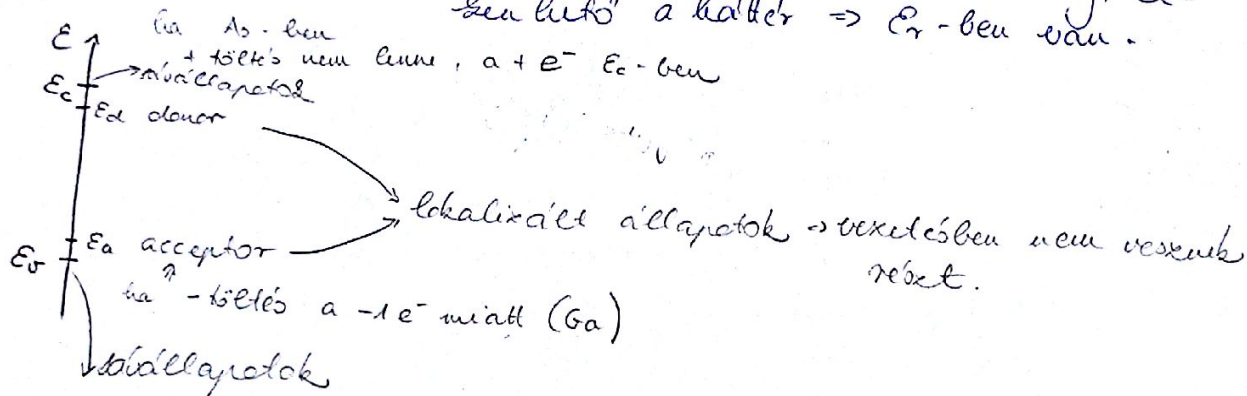 a háttér => ε_r-ben van.
ε
ha As-ben
+ töltés nem lenne, a + e⁻ ε_c-ben
→ sávállapotok
ε_c
ε_d donor
lokalizált állapotok → vezetésben nem vesznek
részt.
ε_v
ε_a acceptor
ha - töltés a -1 e⁻ miatt (Ga)
sávállapotok